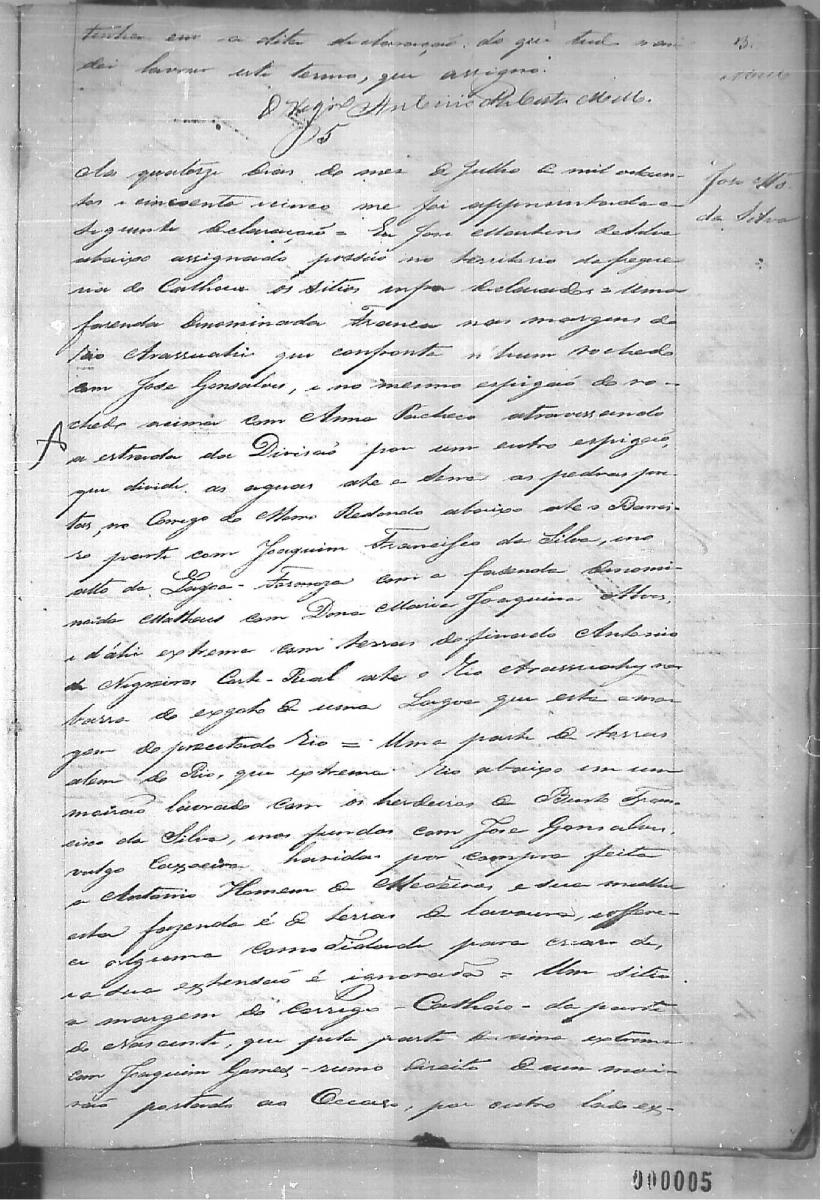 tenha em a dita declaração. do que tudo man
dei lavrar este termo, que assigno.
O Vigr.º Antonio
5
Aos quatorze dias do mes de Julho de mil oitocen-
tos e cincoenta e cinco me foi appresentada a
seguinte declaração = Eu José Martins da Silva
abaixo assignado possúo no territorio da fregue
zia do Calhau os sitios infra declarados = Uma
fazenda denominada Franca nas margens do
Rio Arassuahi que confronta n'hum rochedo
com José Gonsalves, e no mesmo espigaõ do ro-
chedo acima com Anna Pacheco atravessando
a estrada da Divisaõ por um outro espigaõ,
que divide as aguas ate a as pedras pre
tas, no Corrego do Morro Redondo abaixo até o Barrei-
ro parte com Joaquim Francisco da Silva, e no
alto da Lagoa com a fazenda denomi
nada Matheus com Dona Maria Joaquina Alves,
e d'áhi extrema com terras do finado Antonio
de Negreiros Corte-Real até o Rio Arassuahy na
barra do exgoto de uma Lagoa que está a mar
gem do precitado Rio = Uma parte de terras
alem do Rio, que extrema Rio abaixo em um
moiraõ lavrado com os herdeiros de Bento Fran
cisco da Silva, e nos fundos com José Gonsalves,
vulgo havidas por compra feita
a Antonio Homem de Medeiros e sua mulher
esta fazenda é de terras de lavoura, e offere-
ce alguma comodidade para criar
e a sua extensaõ é ignorada = Um sitio
a margem do Corrego - Calháo - da parte
do Nascente, que pela parte de cima extrema
com Joaquim Gomes - rumo direito de um moi
raõ postado ao Occaso, por outro lado ex-
3.
José Ms.
da Silva
000005